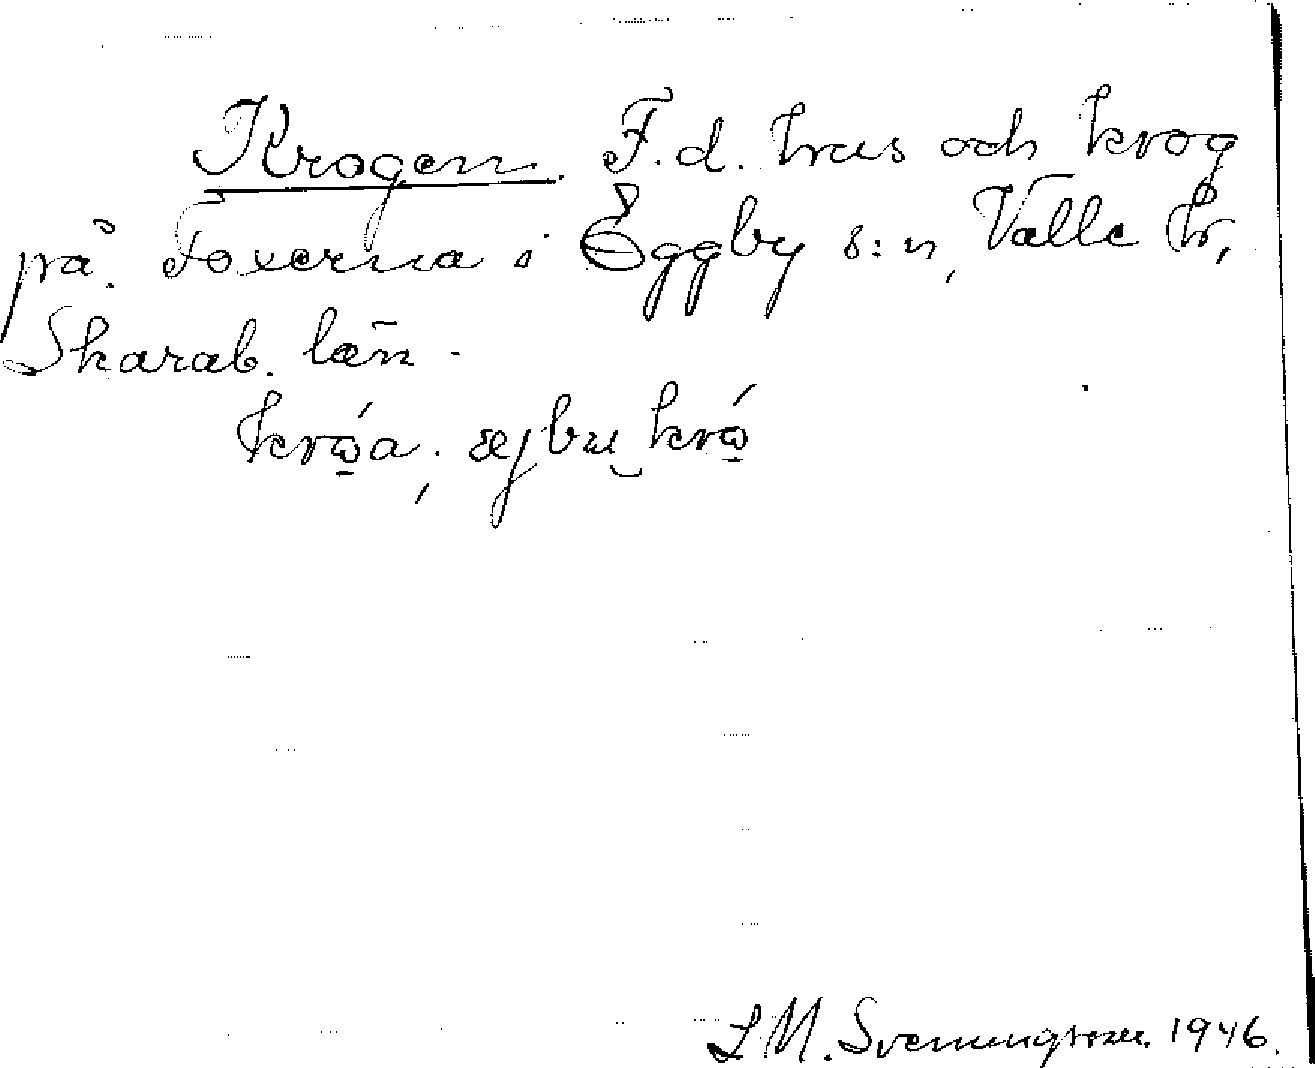 Krogen. F.d. hus och krog
på Foxerna i Eggby s:n, Valle hr,
Skarab. län.
L M. Svenungsson. 1946.